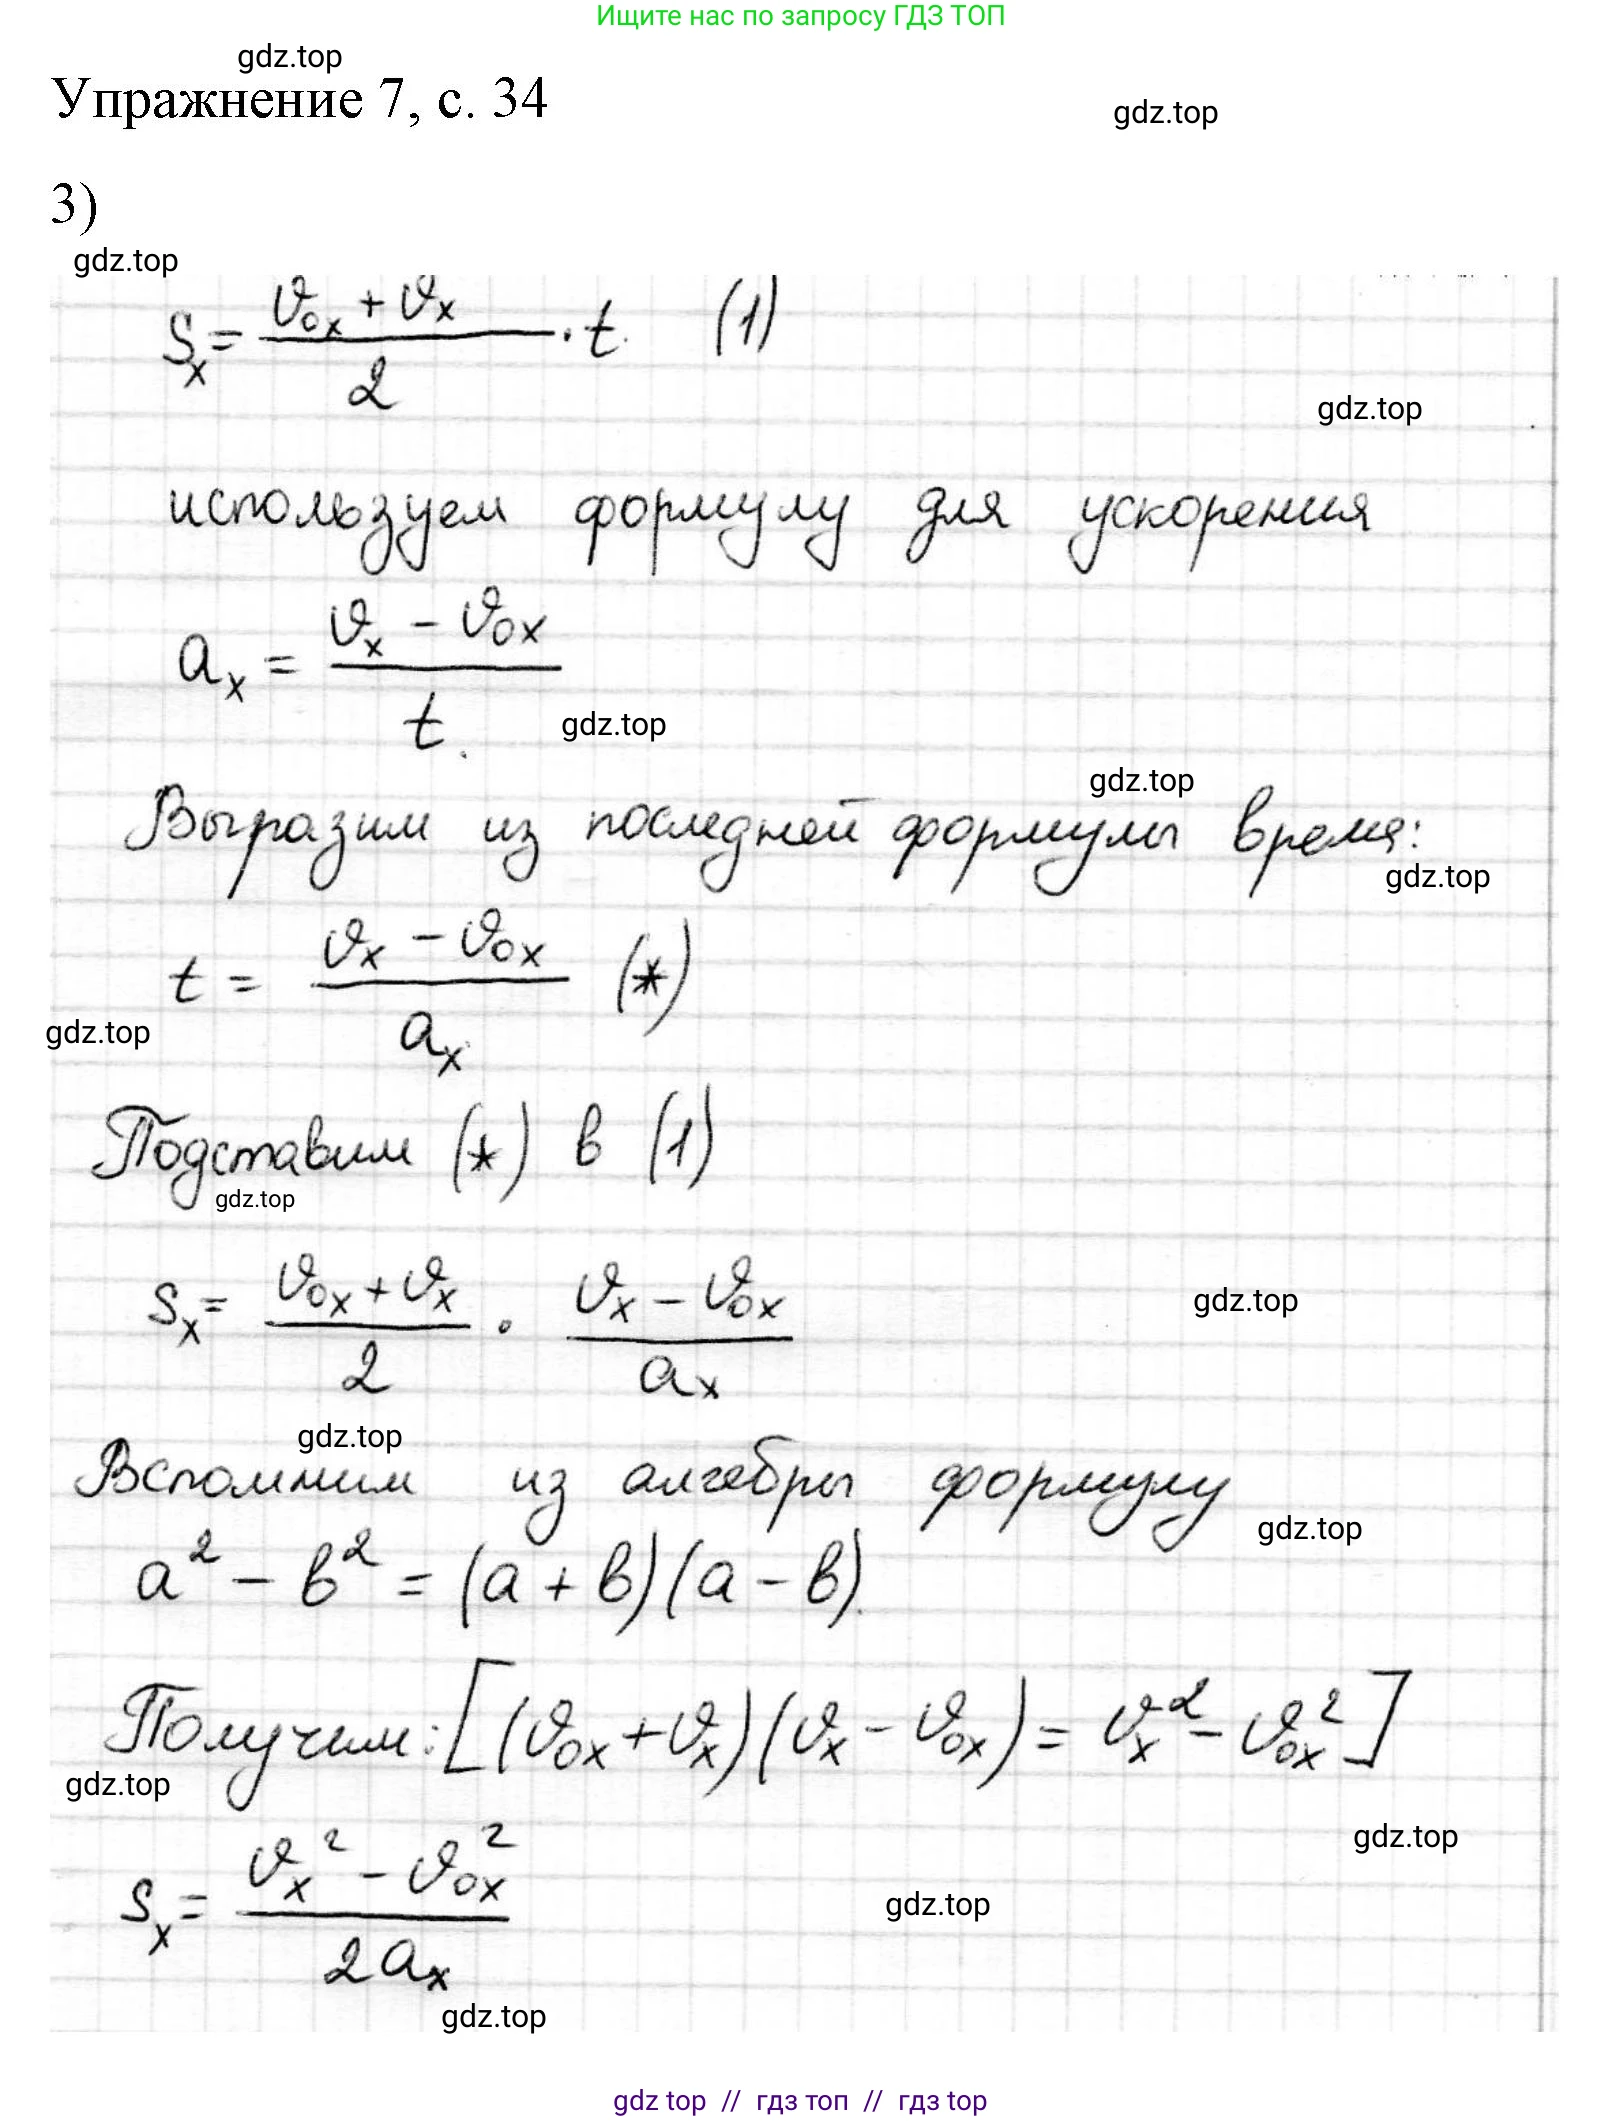 Ищите нас по запросу ГДЗ ТОП
gdz.top
Упражнение 7, с. 34
gdz.top
3)
gdz.top
Sₓ = (ϑ₀ₓ + ϑₓ)/2 · t. (1)
gdz.top
используем формулу для ускорения
aₓ = (ϑₓ − ϑ₀ₓ)/t.
gdz.top
gdz.top
Выразим из последней формулы время:
gdz.top
t = (ϑₓ − ϑ₀ₓ)/aₓ (*)
gdz.top
Подставим (*) в (1)
gdz.top
Sₓ = (ϑ₀ₓ + ϑₓ)/2 · (ϑₓ − ϑ₀ₓ)/aₓ
gdz.top
gdz.top
Вспомним из алгебры формулу
gdz.top
a² − b² = (a + b)(a − b).
Получим: [(ϑ₀ₓ + ϑₓ)(ϑₓ − ϑ₀ₓ) = ϑₓ² − ϑ₀ₓ²]
gdz.top
gdz.top
Sₓ = (ϑₓ² − ϑ₀ₓ²)/2aₓ
gdz.top
gdz.top
gdz top // гдз топ // гдз top